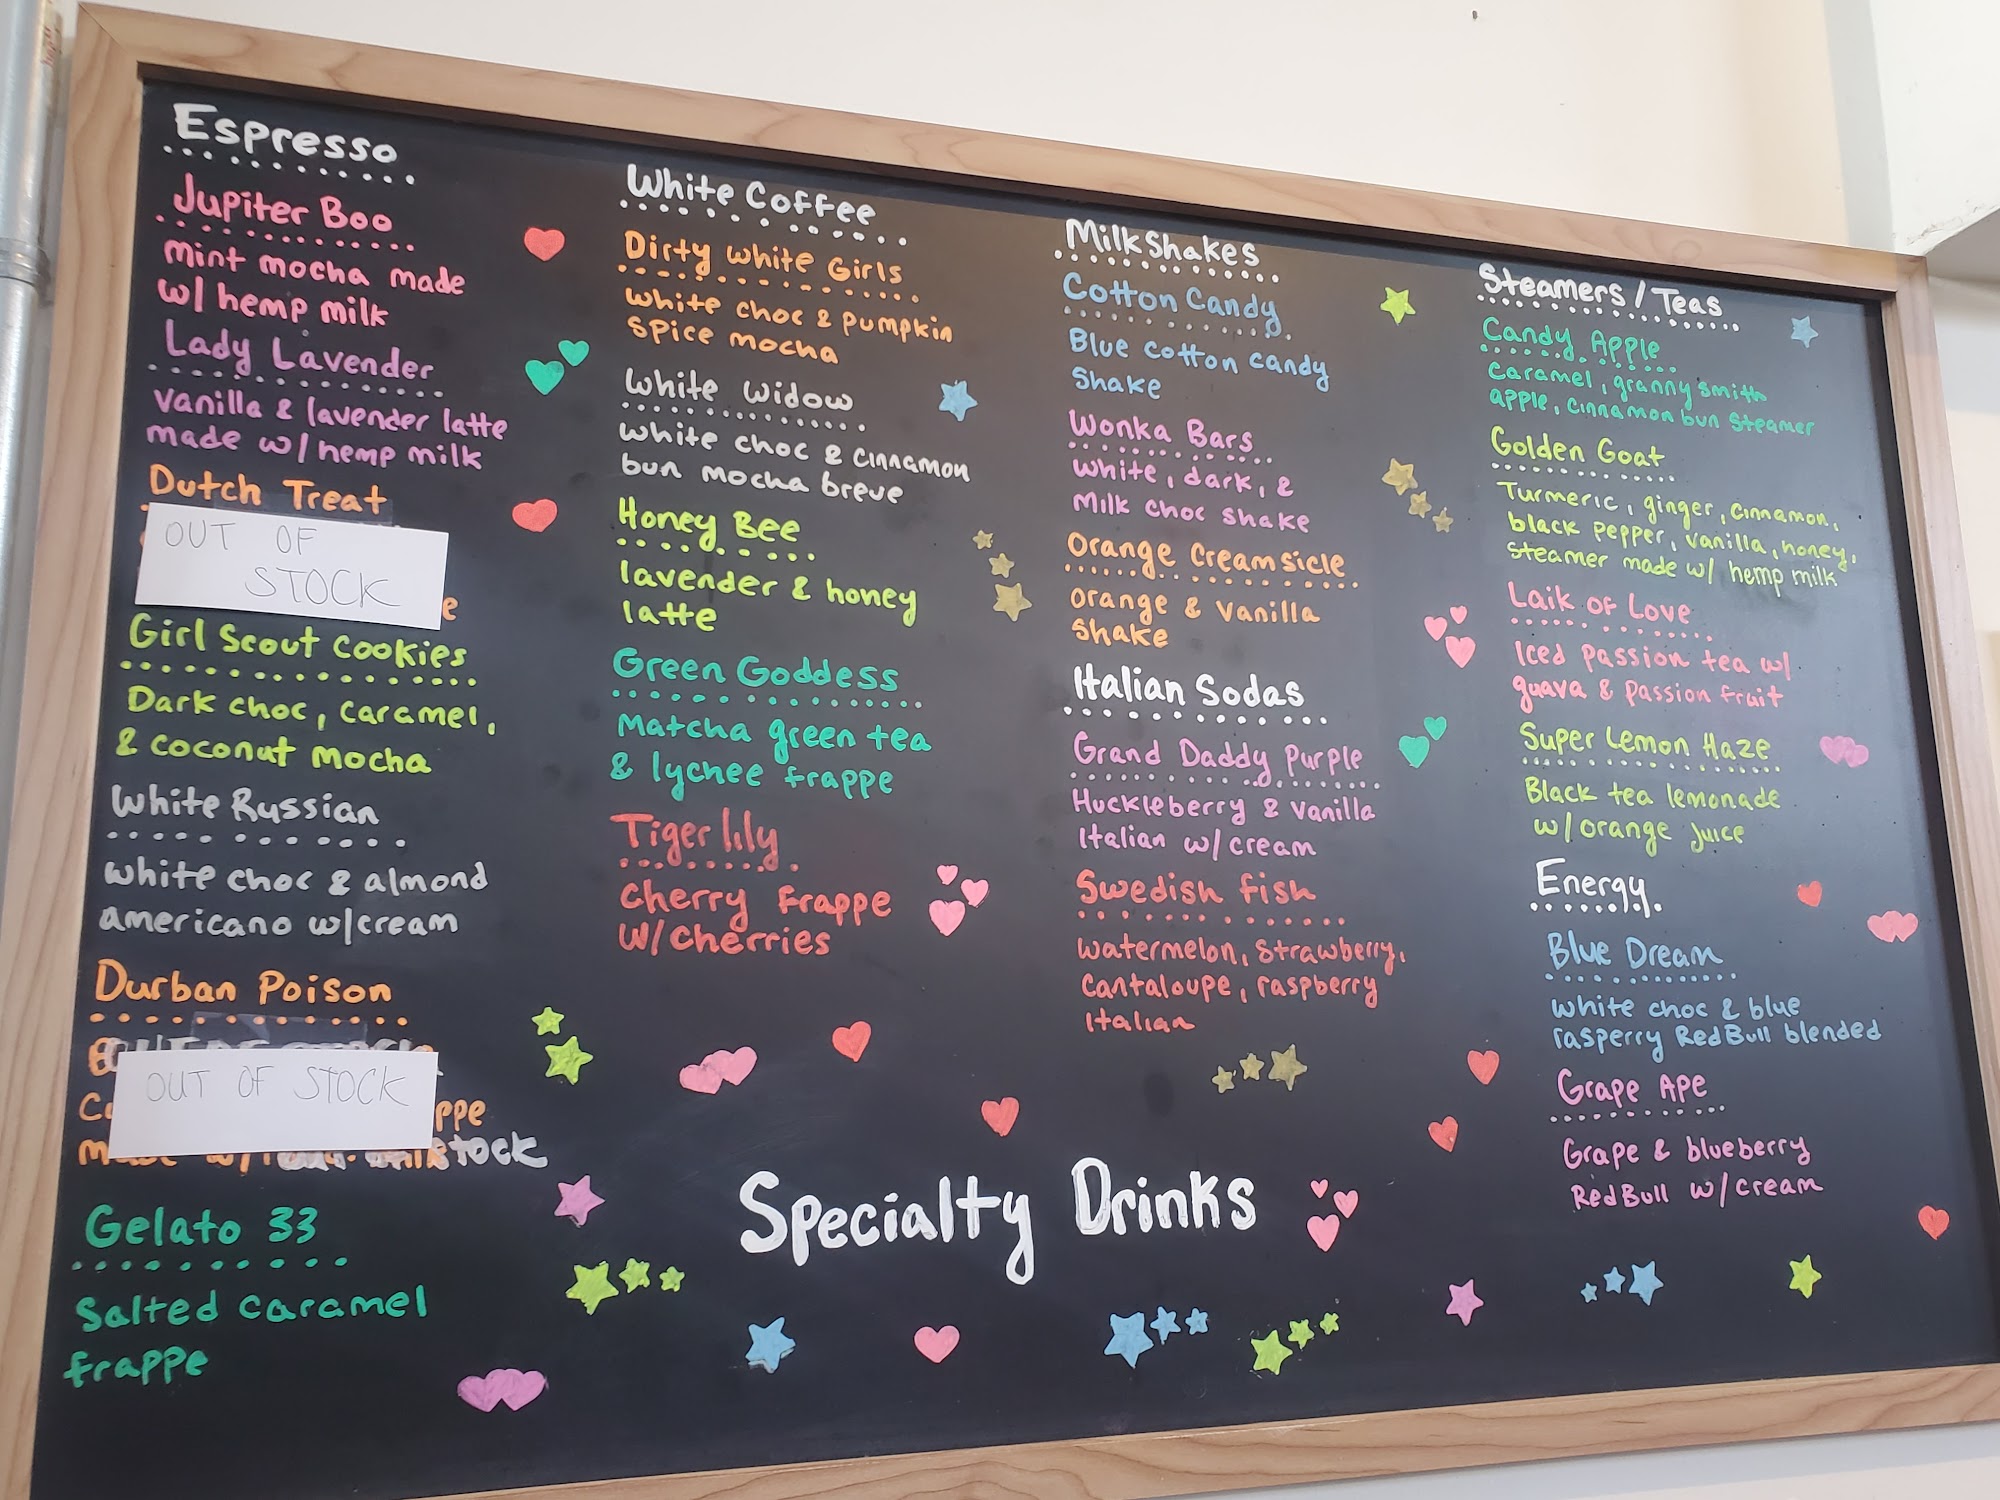 Espresso
Jupiter Boo
mint mocha made
w/ hemp milk
Lady Lavender
vanilla & lavender latte
made w/ hemp milk
Dutch Treat
OUT OF
STOCK
e
Girl Scout Cookies
Dark choc, caramel,
& coconut mocha
White Russian
white choc & almond
americano w/cream
Durban Poison
OUT OF STOCK
ppe
stock
Gelato 33
Salted caramel
frappe
White Coffee
Dirty White Girls
white choc & pumpkin
spice mocha
White Widow
white choc & cinnamon
bun mocha breve
Honey Bee
lavender & honey
latte
Green Goddess
Matcha green tea
& lychee frappe
Tiger lily
Cherry Frappe
w/cherries
Milkshakes
Cotton Candy
Blue cotton candy
shake
Wonka Bars
white, dark, &
Milk choc shake
Orange Creamsicle
orange & vanilla
shake
Italian Sodas
Grand Daddy Purple
Huckleberry & vanilla
Italian w/cream
Swedish Fish
watermelon, strawberry,
cantaloupe, raspberry
Italian
Steamers / Teas
Candy Apple
caramel, granny smith
apple, cinnamon bun steamer
Golden Goat
Turmeric, ginger, cinnamon,
black pepper, vanilla, honey,
steamer made w/ hemp milk
Laik of Love
Iced passion tea w/
guava & passion fruit
Super Lemon Haze
Black tea lemonade
w/orange juice
Energy
Blue Dream
white choc & blue
rasperry RedBull blended
Grape Ape
Grape & blueberry
RedBull w/cream
Specialty Drinks